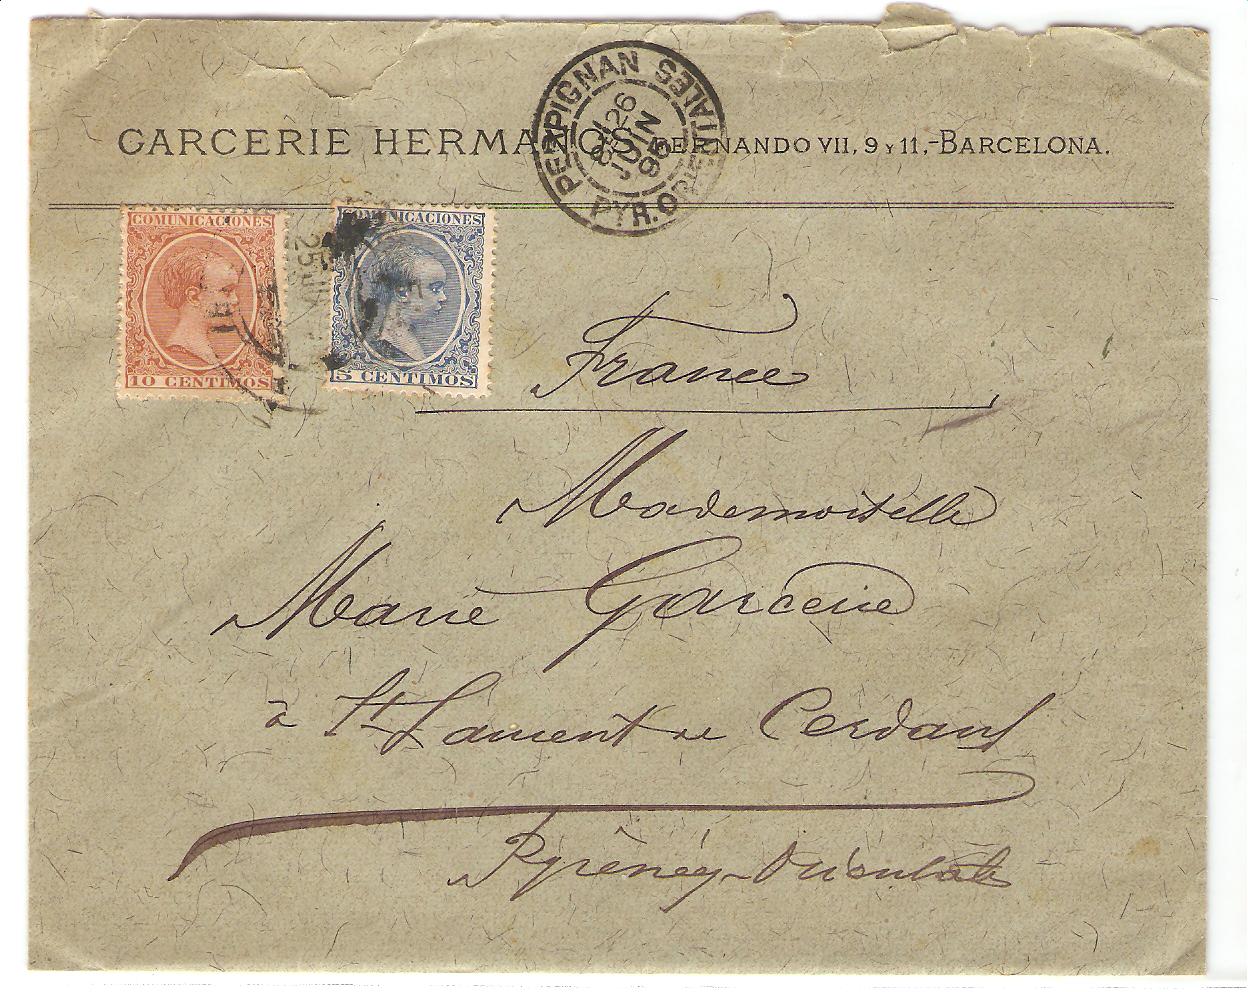 GARCERIE HERMANOS, FERNANDO VII, 9 Y 11,-BARCELONA.
PERPIGNAN
PYR. ORIENTALES
26
JUIN
95
COMUNICACIONES
10 CENTIMOS
COMUNICACIONES
5 CENTIMOS
25 JUN
France
Mademoiselle
Marie Garcerie
à St Laurent de Cerdans
Pyrénées-Orientales